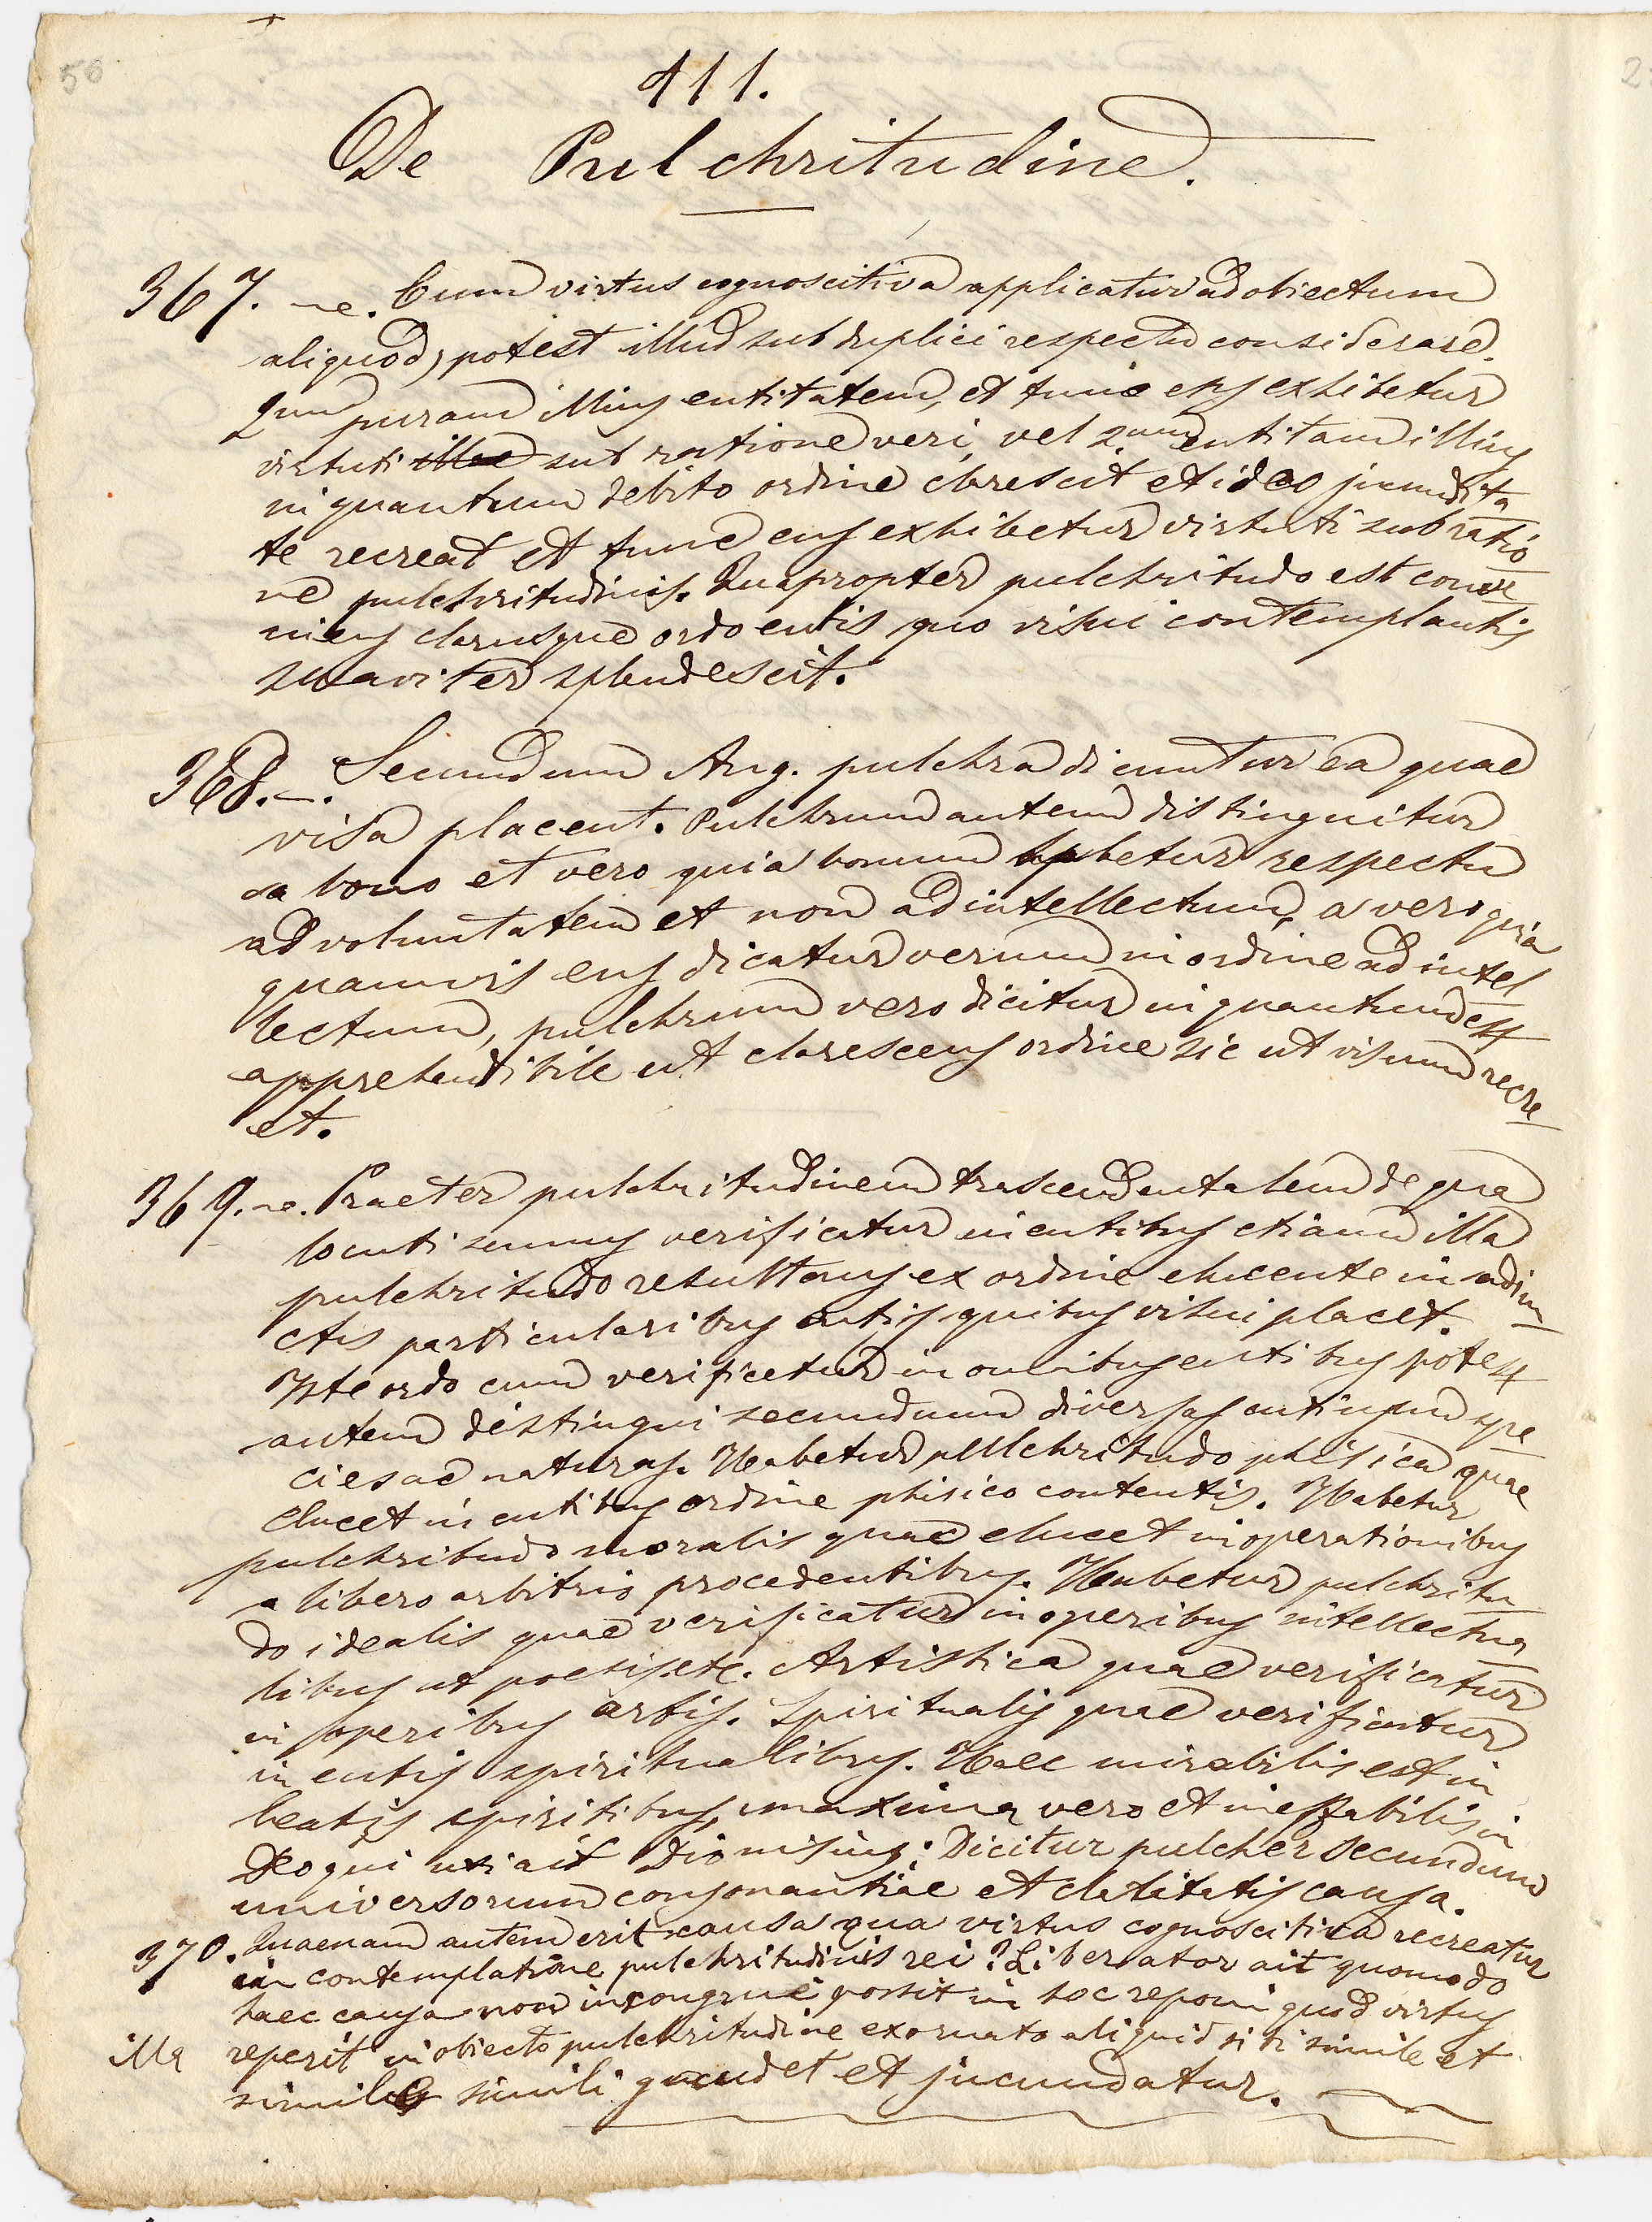 56
411.
De Pulchritudine.
367. Cum virtus cognoscitiva applicatur ad obiectum
aliquod, potest illud sub duplici respectu considerare.
2um puram illius entitatem, et tunc ens exhibetur
virtuti illae sub ratione veri, vel 2um entitam illius
inquantum debito ordine clarescit et ideo jucundita
te recreat et tunc ens exhibetur virtuti sub ratio
ne pulchritudinis. Quapropter pulchritudo est conve
niens clarusque ordo entis quo visui contemplantis
suaviter splendescit.
368. Secundum Aug. pulchra dicuntur ea quae
visa placent. Pulchrum autem distinguitur
a bono et vero quia bonum habetur respectu
ad voluntatem et non ad intellectum, a vero quia
quamvis ens dicatur verum in ordine ad intel
lectum, pulchrum vero dicitur inquantum est
apprehendibile ut clarescens ordine sic ut visum recre
et.
369. Praeter pulchritudinem trascendentalem de qua
locuti sumus verificatur in entibus etiam illa
pulchritudo resultans ex ordine elucente in adiun
ctis particularibus entis quibus visui placet.
Iste ordo cum verificetur in omnibus entibus potest
autem distingui secundum diversas entium spe
cies ac naturas. Habetur pulchritudo phisica quae
elucet in entibus ordine phisico contentis. Habetur
pulchritudo moralis quae elucet in operationibus
a libero arbitrio procedentibus. Habetur pulchritu
do idealis quae verificatur in operibus intellectua
libus ut poesis etc. Artistica quae verificatur
in operibus artis. Spiritualis quae verificatur
in entis spiritualibus. Haec mirabilis est in
beatis spiritibus, maxima vero et ineffabilis in
Deo qui uti ait Dionisius: Dicitur pulcher secundum
universorum consonantiae et claritatis causa.
370. Quaenam autem erit causa qua virtus cognoscitiva recreatur
in contemplatione pulchritudinis rei? Liberator ait quomodo
haec causa non incongrue possit in hoc reponi quod virtus
illa reperit in obiecto pulchritudine exornato aliquid sibi simile et
simile simili gaudet et jucundatur.